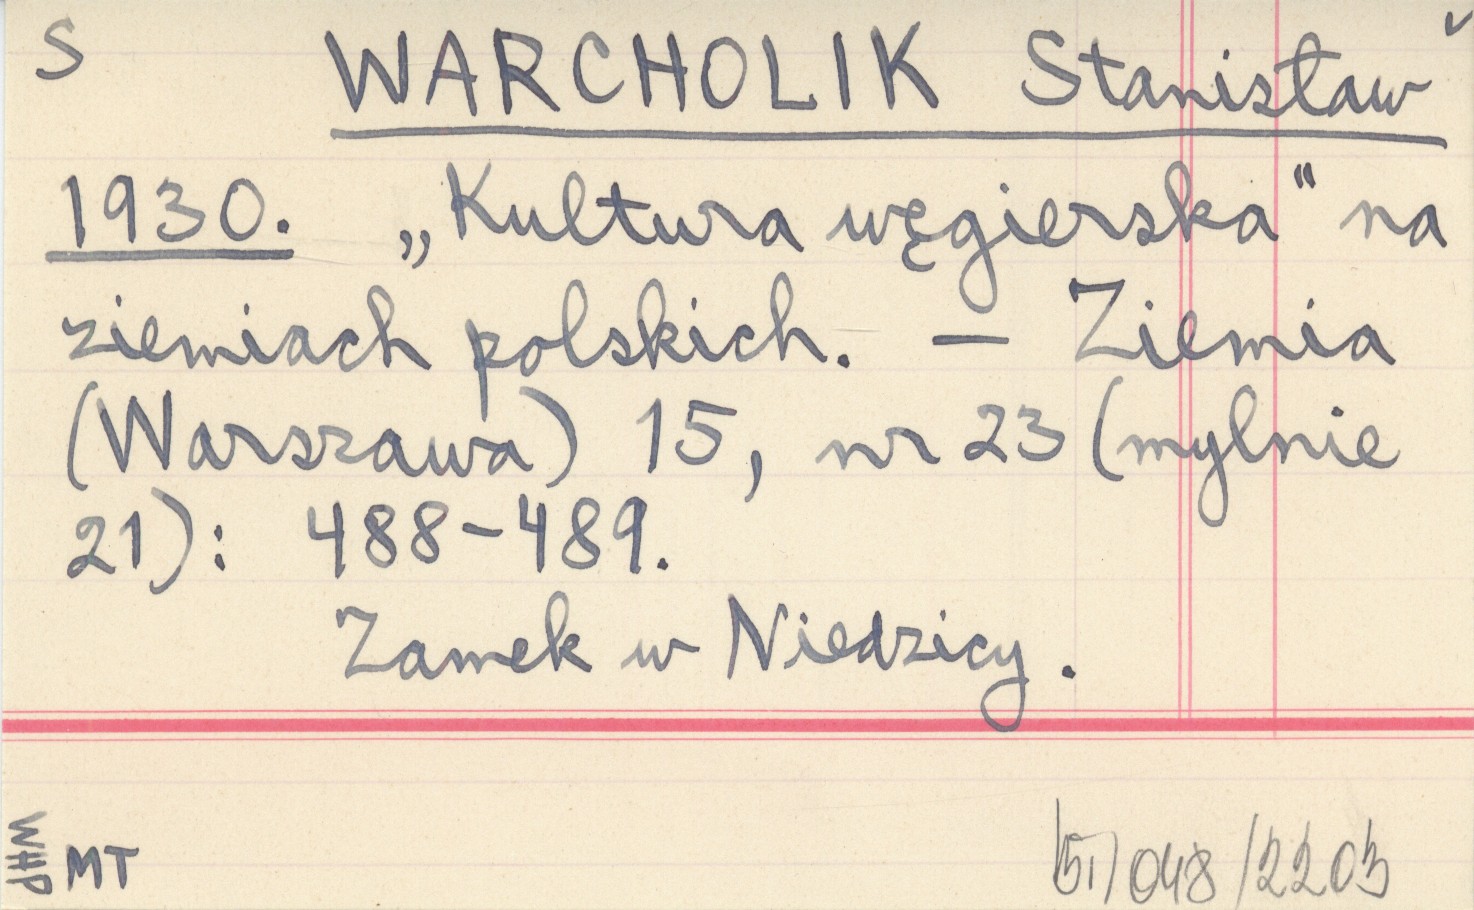 S WARCHOLIK Stanisław
1930. „Kultura węgierska" na
ziemiach polskich. — Ziemia
(Warszawa) 15, nr 23 (mylnie
21): 488-489.
Zamek w Niedzicy.
WHP MT
/048/2203